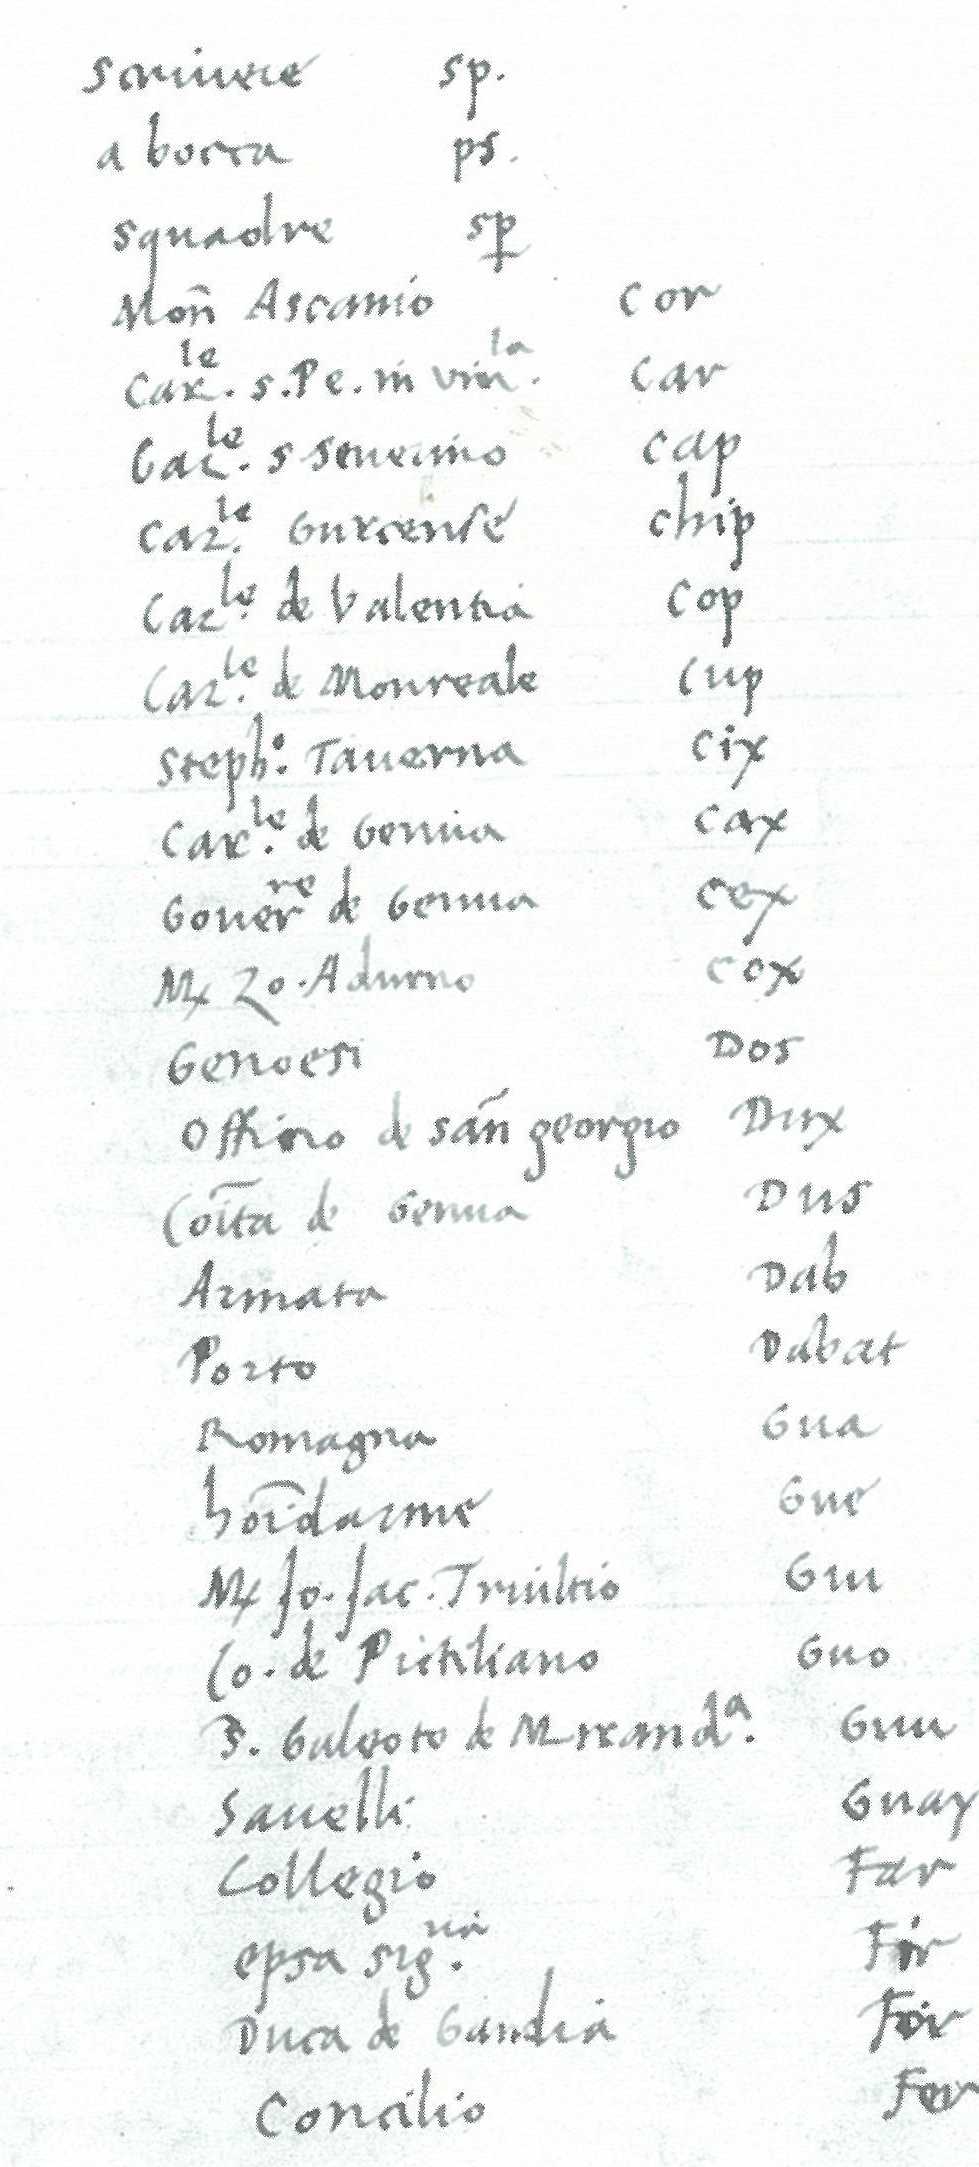 scriuere sp.
a bocca ps.
squadre sp
Mon̄ Ascanio cor
Car.le s. Pe. in vin.la car
Car.le s Seuerino cap
Car.le Gurcense chip
Car.le de Valentia cop
Car.le de Monreale cup
Steph.o Tauerna cix
Car.le de Genua cax
Gouer.re de Genua cex
Mx Zo. Adurno cox
Genoesi Dos
Officio de san̄ georgio Dux
Co͞ita de Genua Dus
Armata Dab
Porto Dabat
Romagna Gua
ho͞idarme Gue
Mx Jo. Jac. Triultio Gui
Co. de Pitiliano Guo
Galeoto de Mirand.a Guu
Sauelli Guax
Collegio Far
epsa sig.ria Fir
Duca de Gandia For
Concilio Fer